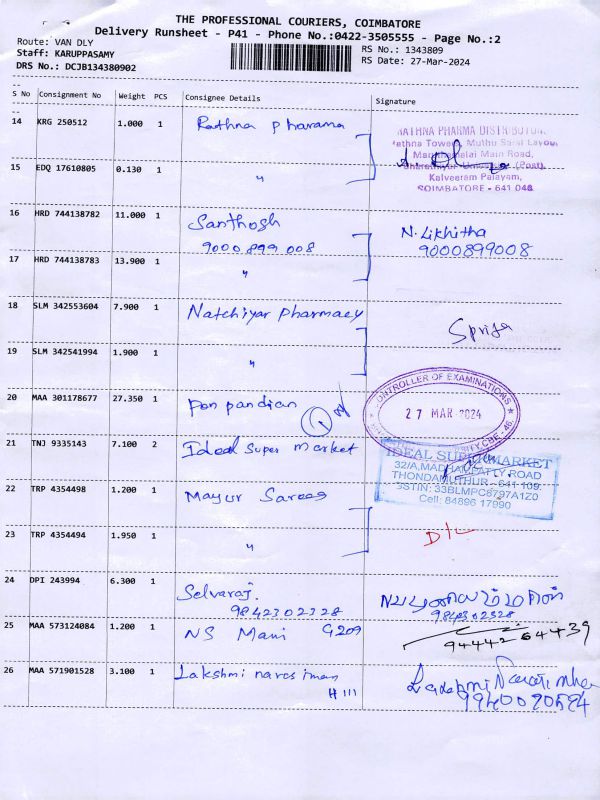 THE PROFESSIONAL COURIERS, COIMBATORE
Delivery Runsheet - P41 - Phone No.:0422-3505555 - Page No.:2
Route: VAN DLY
Staff: KARUPPASAMY
DRS No.: DCJB134380902
RS No.: 1343809
RS Date: 27-Mar-2024
S No Consignment No Weight PCS Consignee Details Signature
14 KRG 250512 1.000 1 Rathna pharama
RATHNA PHARMA DISTRIBUTOR
Rathna Towers, Muthu Sarsi Layout
Main Road,
(Post)
Kalveeram Palayam,
COIMBATORE - 641 046
15 EDQ 17610805 0.130 1 "
16 HRD 744138782 11.000 1 Santhosh
9000 899 008
N. Likhitha
9000899008
17 HRD 744138783 13.900 1 "
18 SLM 342553604 7.900 1 Natchiyar pharmaey
19 SLM 342541994 1.900 1 "
20 MAA 301178677 27.350 1 pon pandian
CONTROLLER OF EXAMINATIONS
27 MAR 2024
21 TNJ 9335143 7.100 2 Ideal Super market
IDEAL SUPERMARKET
32/A, MADHAMPATTY ROAD
THONDAMUTHUR - 641 109
GSTIN: 33BLMPC8797A1Z0
Cell: 84896 17990
22 TRP 4354498 1.200 1 Mayur Sarees
23 TRP 4354494 1.950 1 "
24 DPI 243994 6.300 1 Selvaraj.
9842302328
9842302328
25 MAA 573124084 1.200 1 NS Mani G209
94442 64439
26 MAA 571901528 3.100 1 Lakshmi naresiman
H 111
Lakshmi
9940070594